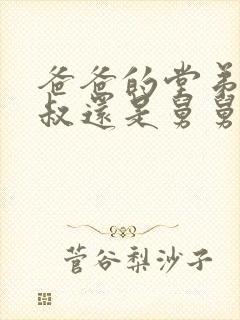 爸爸的堂弟
叔還是舅舅
菅谷梨沙子